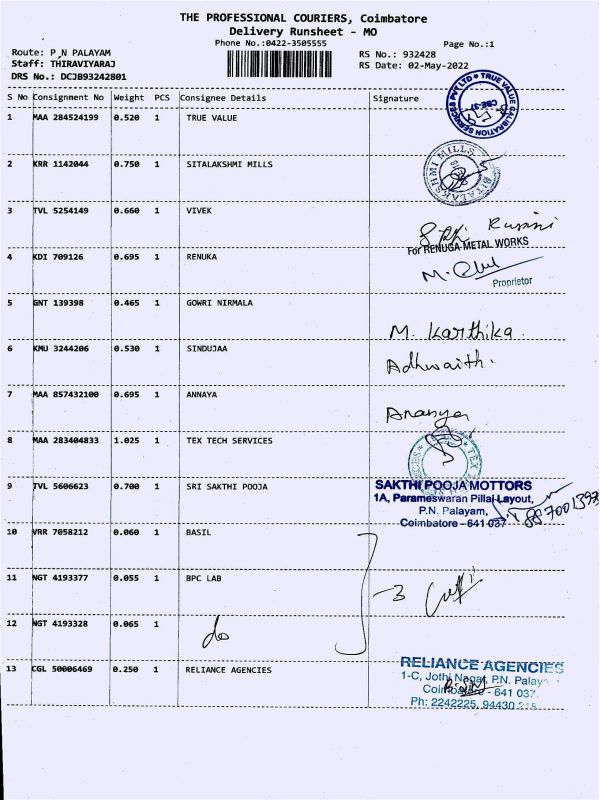 THE PROFESSIONAL COURIERS, Coimbatore
Delivery Runsheet - MO
Phone No.:0422-3505555
Page No.:1
Route: P N PALAYAM
RS No.: 932428
Staff: THIRAVIYARAJ
RS Date: 02-May-2022
DRS No.: DCJB93242801
S No Consignment No Weight PCS Consignee Details Signature
1 MAA 284524199 0.520 1 TRUE VALUE
TRUE VALUE CALIBRATION SERVICES PVT LTD
2 KRR 1142044 0.750 1 SITALAKSHMI MILLS
3 TVL 5254149 0.660 1 VIVEK
4 KDI 709126 0.695 1 RENUKA
For RENUGA METAL WORKS
Proprietor
5 GNT 139398 0.465 1 GOWRI NIRMALA
M. Karthika
6 KMU 3244206 0.530 1 SINDUJAA
Adhwaith.
7 MAA 857432100 0.695 1 ANNAYA
Ananya
8 MAA 283404833 1.025 1 TEX TECH SERVICES
9 TVL 5606623 0.700 1 SRI SAKTHI POOJA
SAKTHI POOJA MOTTORS
1A, Parameswaran Pillai Layout,
P.N. Palayam,
Coimbatore - 641 037
10 VRR 7058212 0.060 1 BASIL
11 NGT 4193377 0.055 1 BPC LAB
3
12 NGT 4193328 0.065 1 do
13 CGL 50006469 0.250 1 RELIANCE AGENCIES
RELIANCE AGENCIES
1-C, Jothi Nagar, P.N. Palay
Coimbatore - 641 037.
Ph: 2242225, 94430